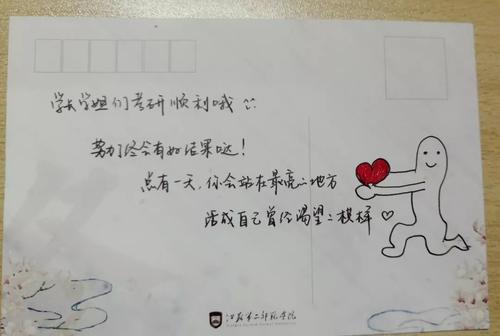 学长学姐们考研顺利哦
努力终会有好结果哒！
总有一天，你会站在最亮的地方
活成自己曾经渴望的模样
江苏第二师范学院